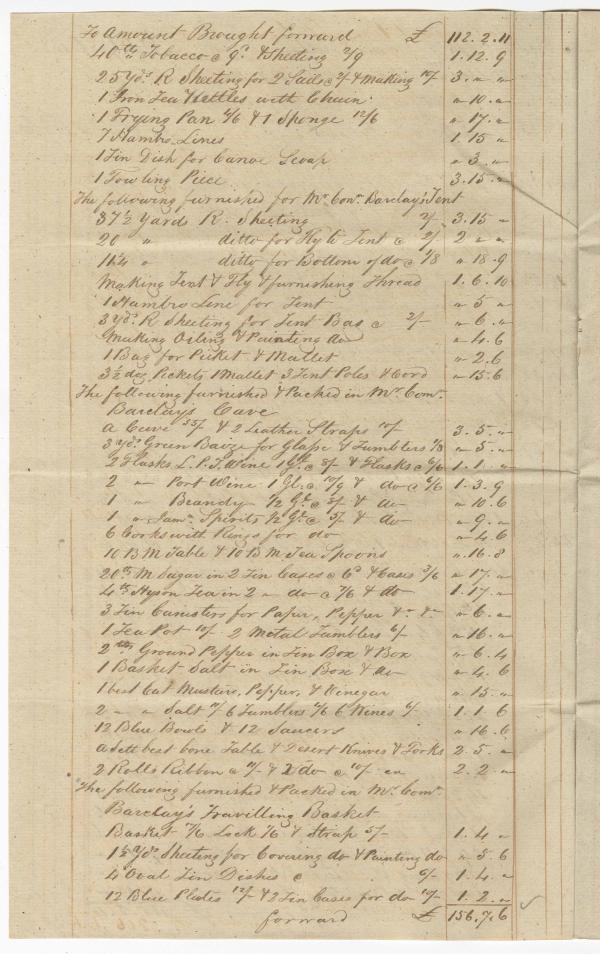 To Amount Brought forward £ 112.2.11
40 lb Tobacco @ 9d & Sheeting 2/9 1.12.9
25 yds R Sheeting for 2 Sails @ 2/- & Making 10/- 3. " "
1 Iron Tea Kettles with Chain " 10 "
1 Frying Pan 4/6 & 1 Sponge 12/6 " 17 "
7 Hambro Lines 1.15 "
1 Tin Dish for Canoe Scoop " 3 "
1 Fowling Piece 3.15 "
The following furnished for Mr. Com. Barclay's Tent
37½ Yards R. Sheeting 2/- 3.15 "
20 " ditto for Fly to Tent @ 2/- 2 " "
11¼ " ditto for Bottom of do @ 1/8 " 18.9
Making Tent & Fly & furnishing Thread 1.6.10
1 Hambro Line for Tent " 5 "
3 yds. R Sheeting for Tent Bag @ 2/- " 6 "
Making Oiling & Painting do " 4.6
1 Bag for Picket & Mallet " 2.6
3½ doz Pickets 1 Mallet 3 Tent Poles & Cord " 15.6
The following furnished & Packed in Mr. Com.
Barclays Cave
A Cave 55/- & 2 Leather Straps 10/- 3.5 "
3 yds. Green Baize for Glass & Tumblers 1/8 " 5 "
2 Flasks L. P. T. Wine 1 Gl. @ 8/- & Flasks @ 6/6 1.1 "
2 " Port Wine 1 Gl. @ 10/9 & do @ 6/6 1.3.9
1 " Brandy ½ Gl. @ 8/- & do " 10.6
1 " Jama. Spirits ½ Gl. @ 5/- & do " 9 "
6 Corks with Rings for do " 4.6
10 B M Table & 10 B M Tea Spoons " 16.8
20 lb M Sugar in 2 Tin Cases @ 6d & Cases 3/6 " 17 "
4 lb Hyson Tea in 2 " do @ 7/6 & do 1.17 "
3 Tin Canisters for Paper, Pepper &c &c " 6 "
1 Tea Pot 10/- 2 Metal Tumblers 6/- " 16 "
2 lb Ground Pepper in Tin Box & Box " 6.4
1 Basket Salt in Tin Box & do " 4.6
1 best Cut Musters, Pepper, & Vinegar " 15 "
2 " " Salt 6 Tumblers 6 Wines 1.1.6
12 Blue Bowls & 12 Saucers " 16.6
A sett best bone Table & Desert Knives & Forks 2.5 "
2 Rolls Ribbon @ & 2 do @ 10/- ea 2.2 "
The following furnished & Packed in Mr. Com.
Barclay's Travilling Basket
Basket 17/6 Lock 1/6 & Strap 5/- 1.4 "
1½ yds. Sheeting for Covering do & Painting do " 5.6
4 Oval Tin Dishes @ 6/- 1.4 "
12 Blue Plates 12/- & 2 Tin Cases for do 10/- 1.2 "
forward £ 156.7.6